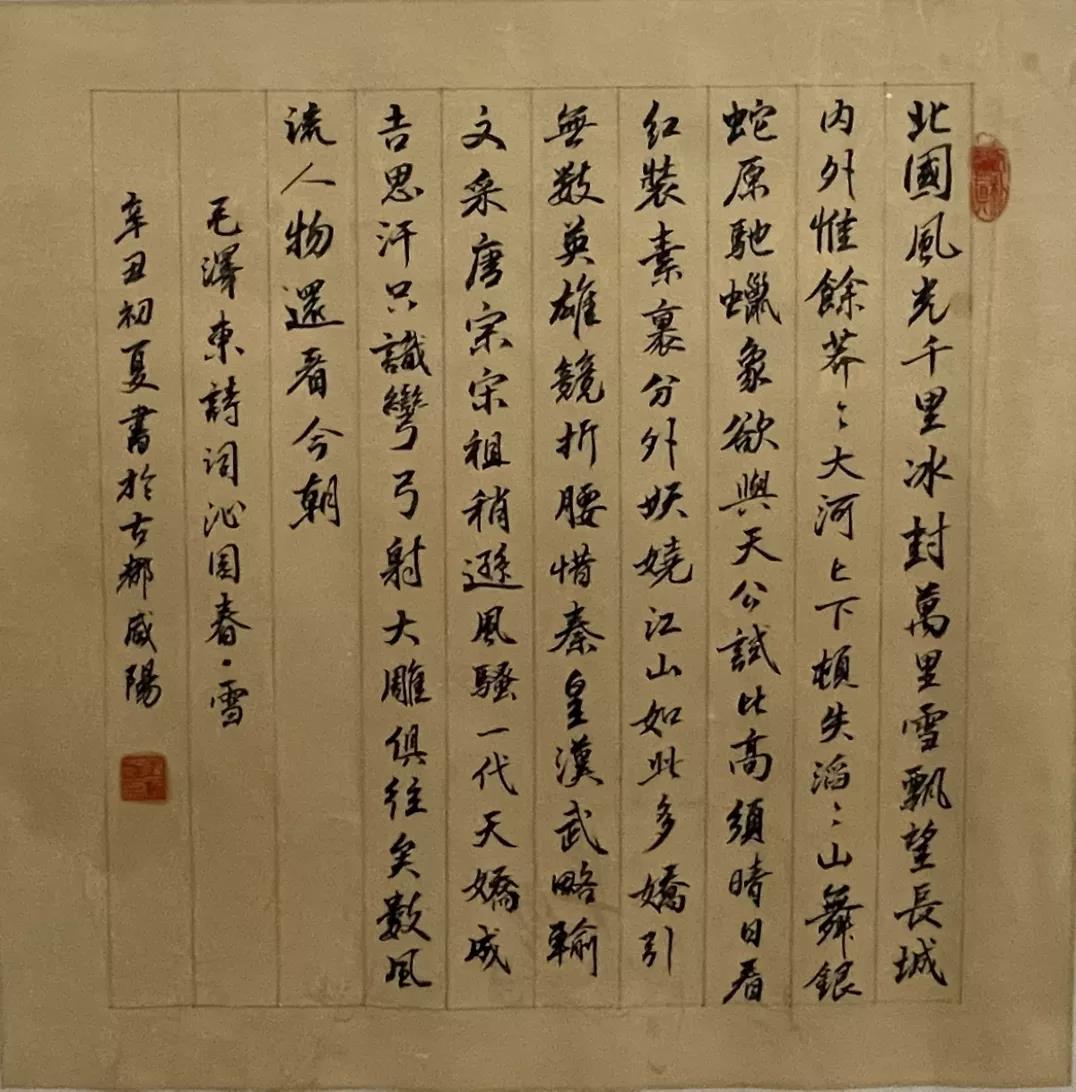 北國風光千里冰封萬里雪飄望長城
内外惟餘莽〻大河上下頓失滔〻山舞銀
蛇原馳蠟象欲與天公試比高須晴日看
紅裝素裹分外妖嬈江山如此多嬌引
無數英雄競折腰惜秦皇漢武略輸
文采唐宗宋祖稍遜風騷一代天嬌成
吉思汗只識彎弓射大雕俱往矣數風
流人物還看今朝
毛澤東詩词沁园春·雪
辛丑初夏書於古都咸陽